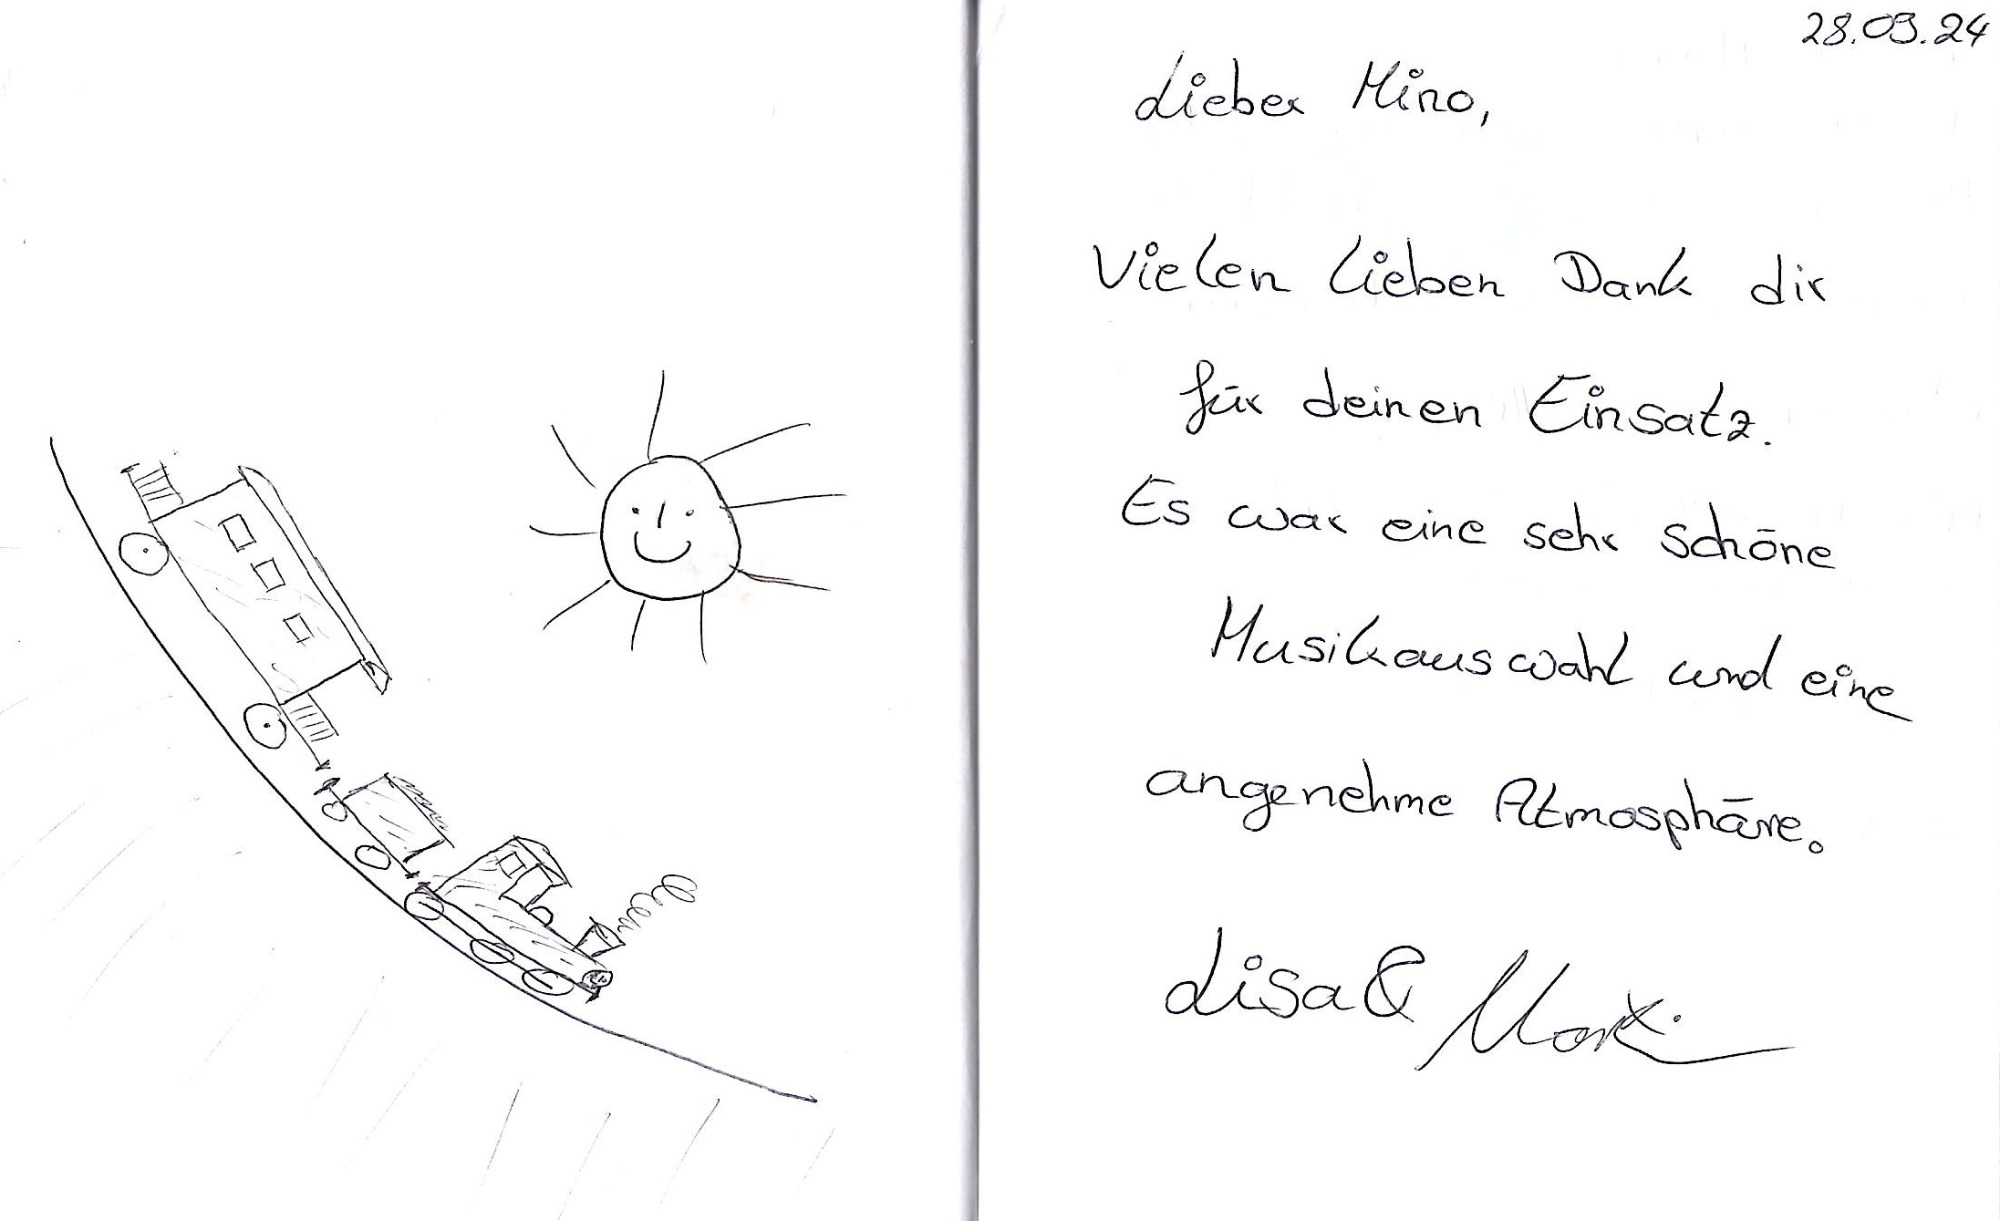 28.09.24
Lieber Mino,
Vielen lieben Dank dir
für deinen Einsatz.
Es war eine sehr schöne
Musikauswahl und eine
angenehme Atmosphäre.
Lisa &